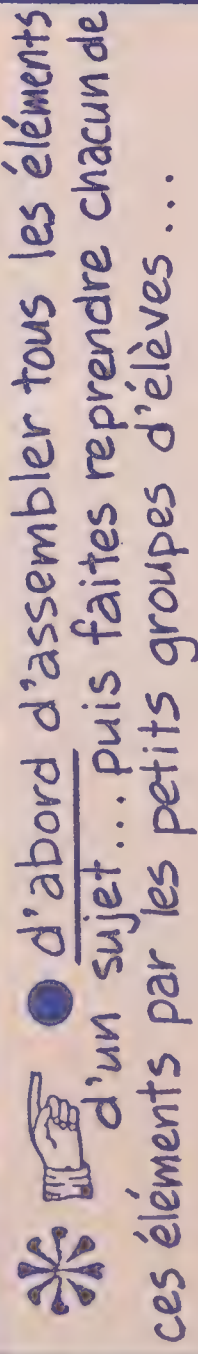 d'abord d'assembler tous les éléments
d'un sujet... puis faites reprendre chacun de
ces éléments par les petits groupes d'élèves...